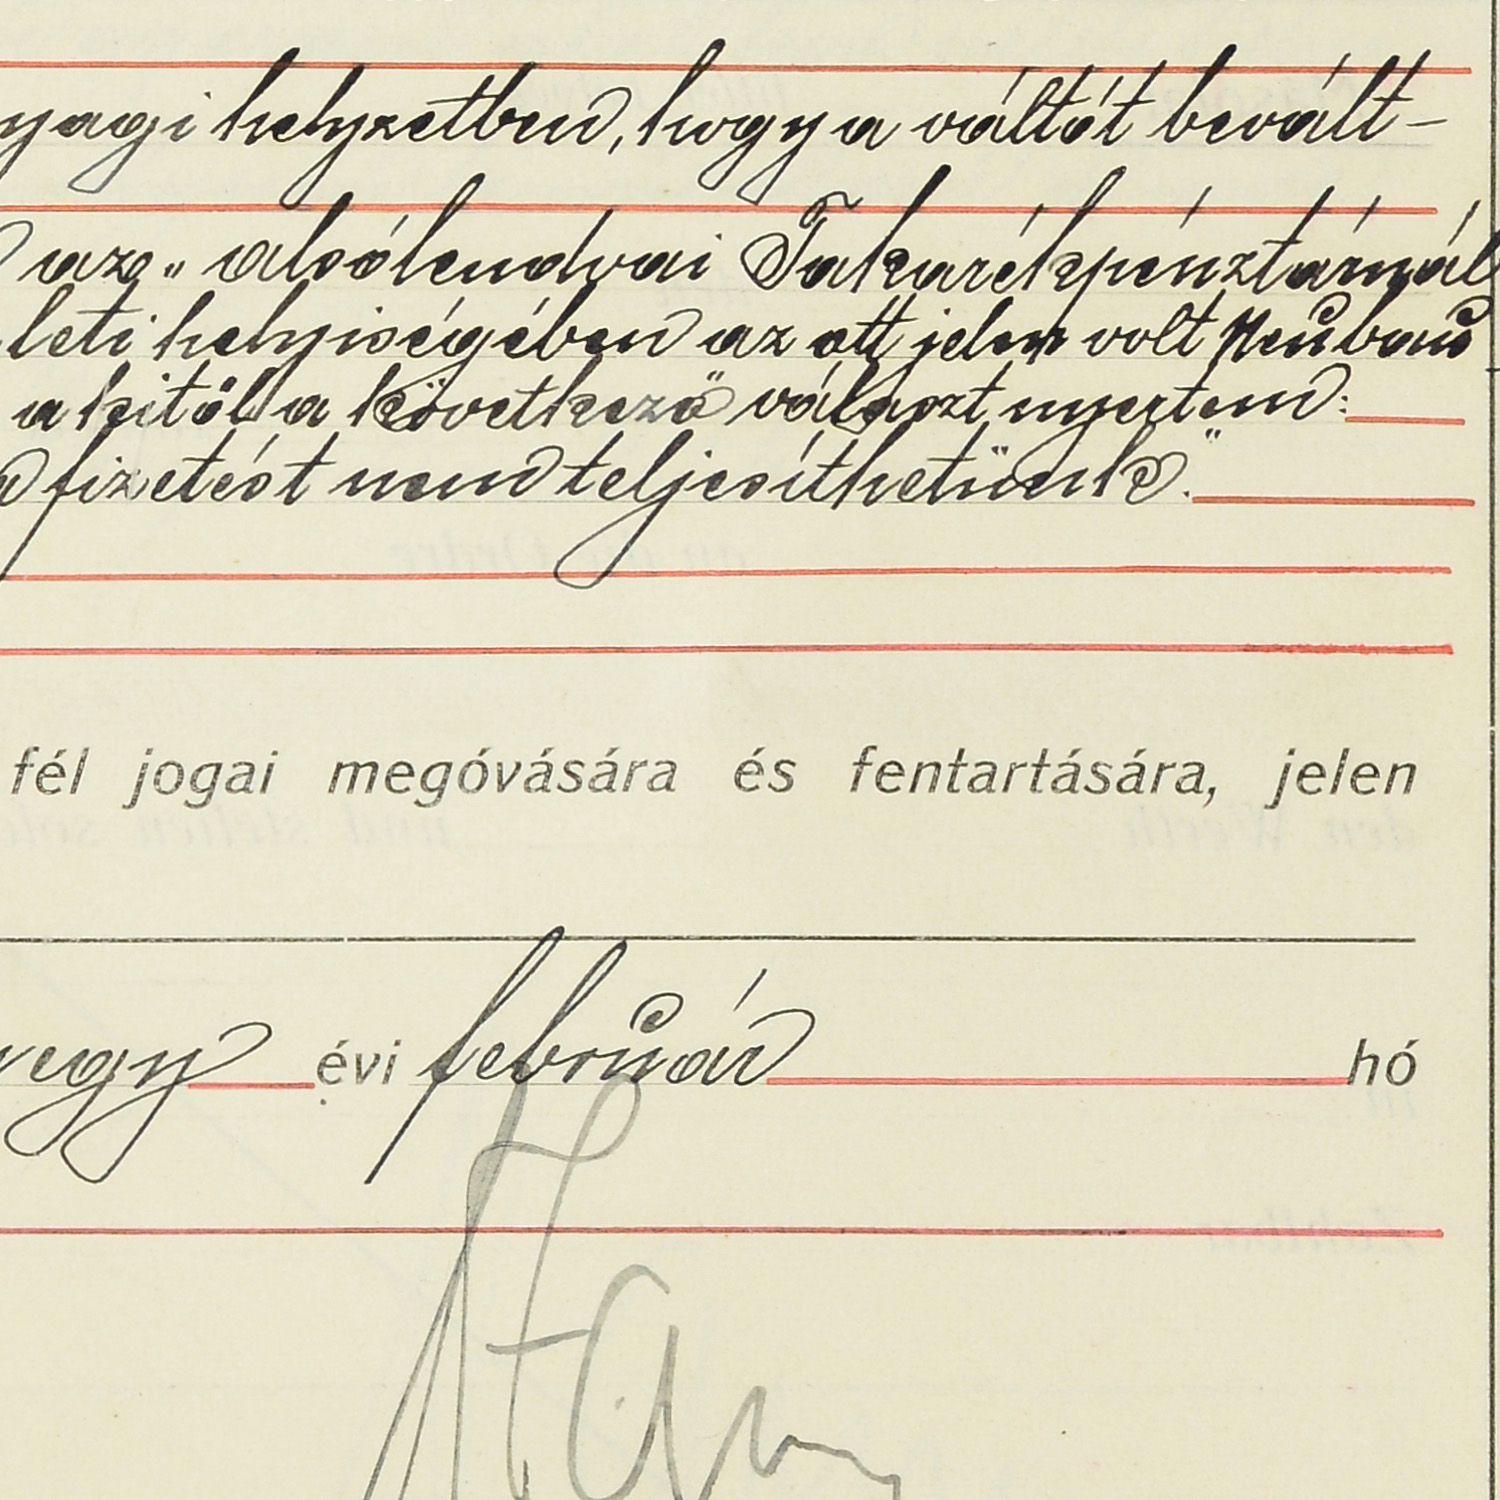 yagi helyzetben, hogy a váltót bevált-
az „alsólendvai Takarékpénztárnál
leti helyiségében az ott jelen volt
a kitől a következő választ nyertem:
fizetést nem teljesíthetünk."
fél jogai megóvására és fentartására, jelen
egy évi február hó